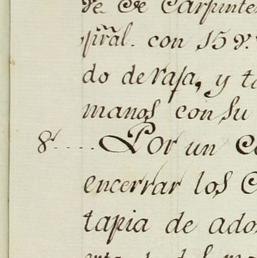 de Carpinte
pñal. con 15 v.
do de raja, y ta
manos con su
8.... Por un Co
encerrar los C
tapia de ado